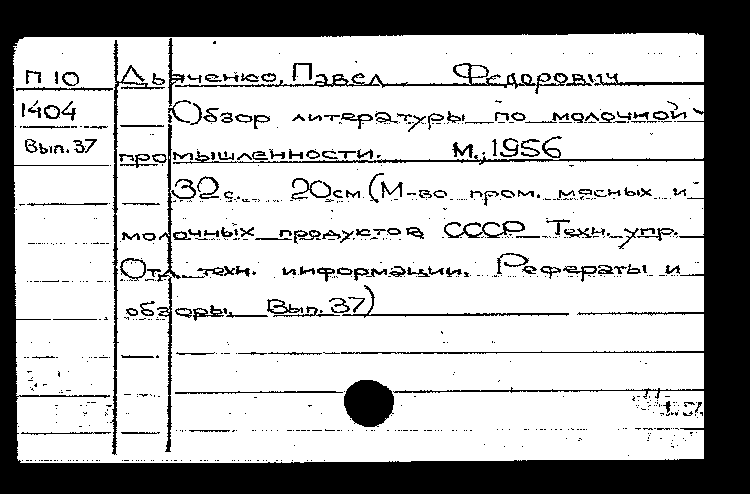 П 10 Дьяченко, Павел Федорович
1404 Обзор литературы по молочной
Вып. 37 промышленности. М., 1956
32 с. 20 см (М-во пром. мясных и
молочных продуктов СССР Техн. упр.
Отд. техн. информации. Рефераты и
обзоры. Вып. 37)